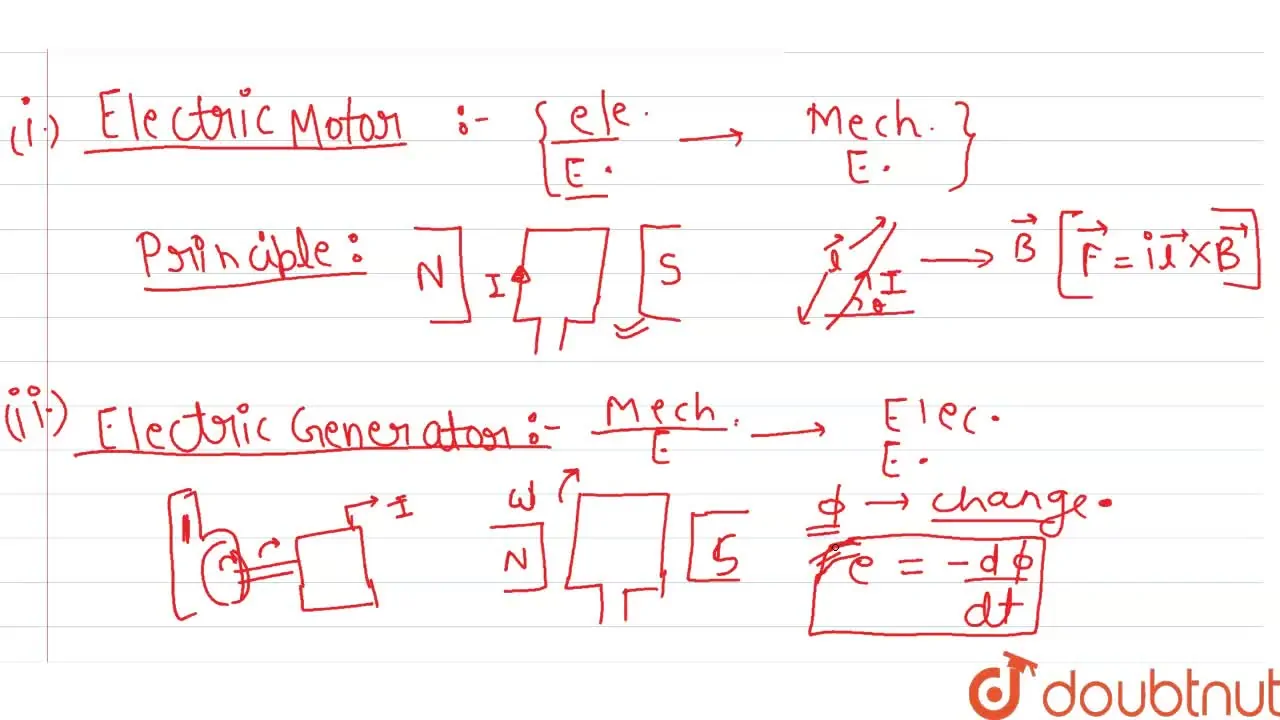 (i.) Electric Motor :- { ele. E. → Mech. E. }
Principle : N I S l I θ → B⃗ [ F⃗ = i l⃗ × B⃗ ]
(ii.) Electric Generator :- Mech. E → Elec. E.
I ω N S φ → change.
e = -dφ/dt
doubtnut